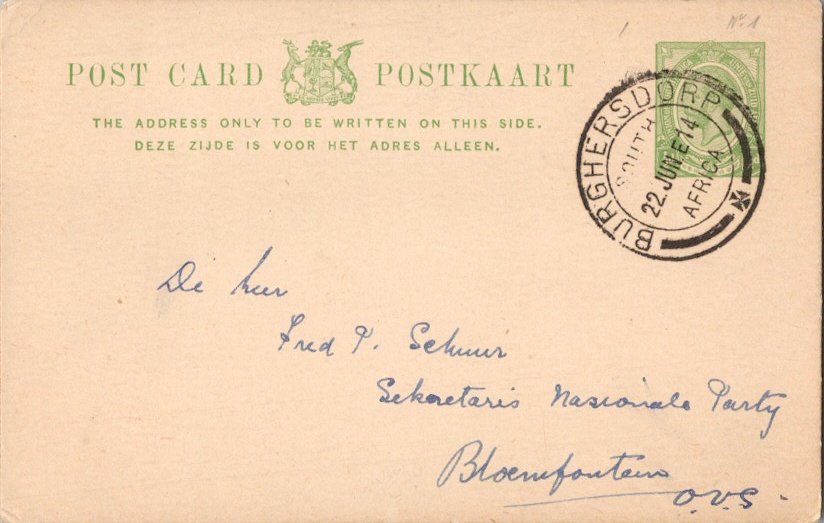 No 1
POST CARD POSTKAART
THE ADDRESS ONLY TO BE WRITTEN ON THIS SIDE.
DEZE ZIJDE IS VOOR HET ADRES ALLEEN.
BURGHERSDORP
SOUTH
22 JUN E 14
AFRICA
De heer
Fred P.
Sekretaris Nasionale Party
Bloemfontein
O.V.S.